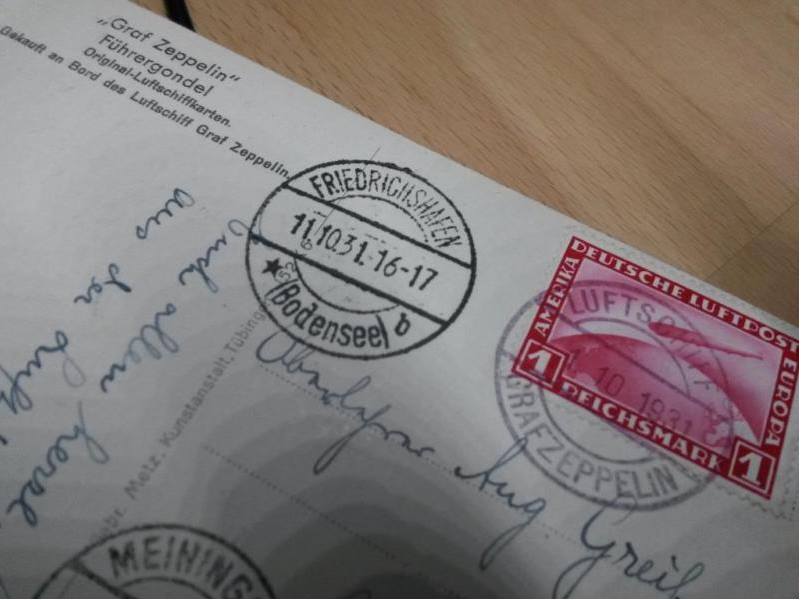 „Graf Zeppelin“
Führergondel
Original-Luftschiffkarten.
Gekauft an Bord des Luftschiff Graf Zeppelin.
FRIEDRICHSHAFEN
11.10.31.16-17
(Bodensee) b
DEUTSCHE LUFTPOST
AMERIKA
EUROPA
1 REICHSMARK 1
LUFTSCHIFF
10 1931
GRAF ZEPPELIN
aus der Luft
Euch allen
Metz. Kunstanstalt, Tübing
Aug
MEINING